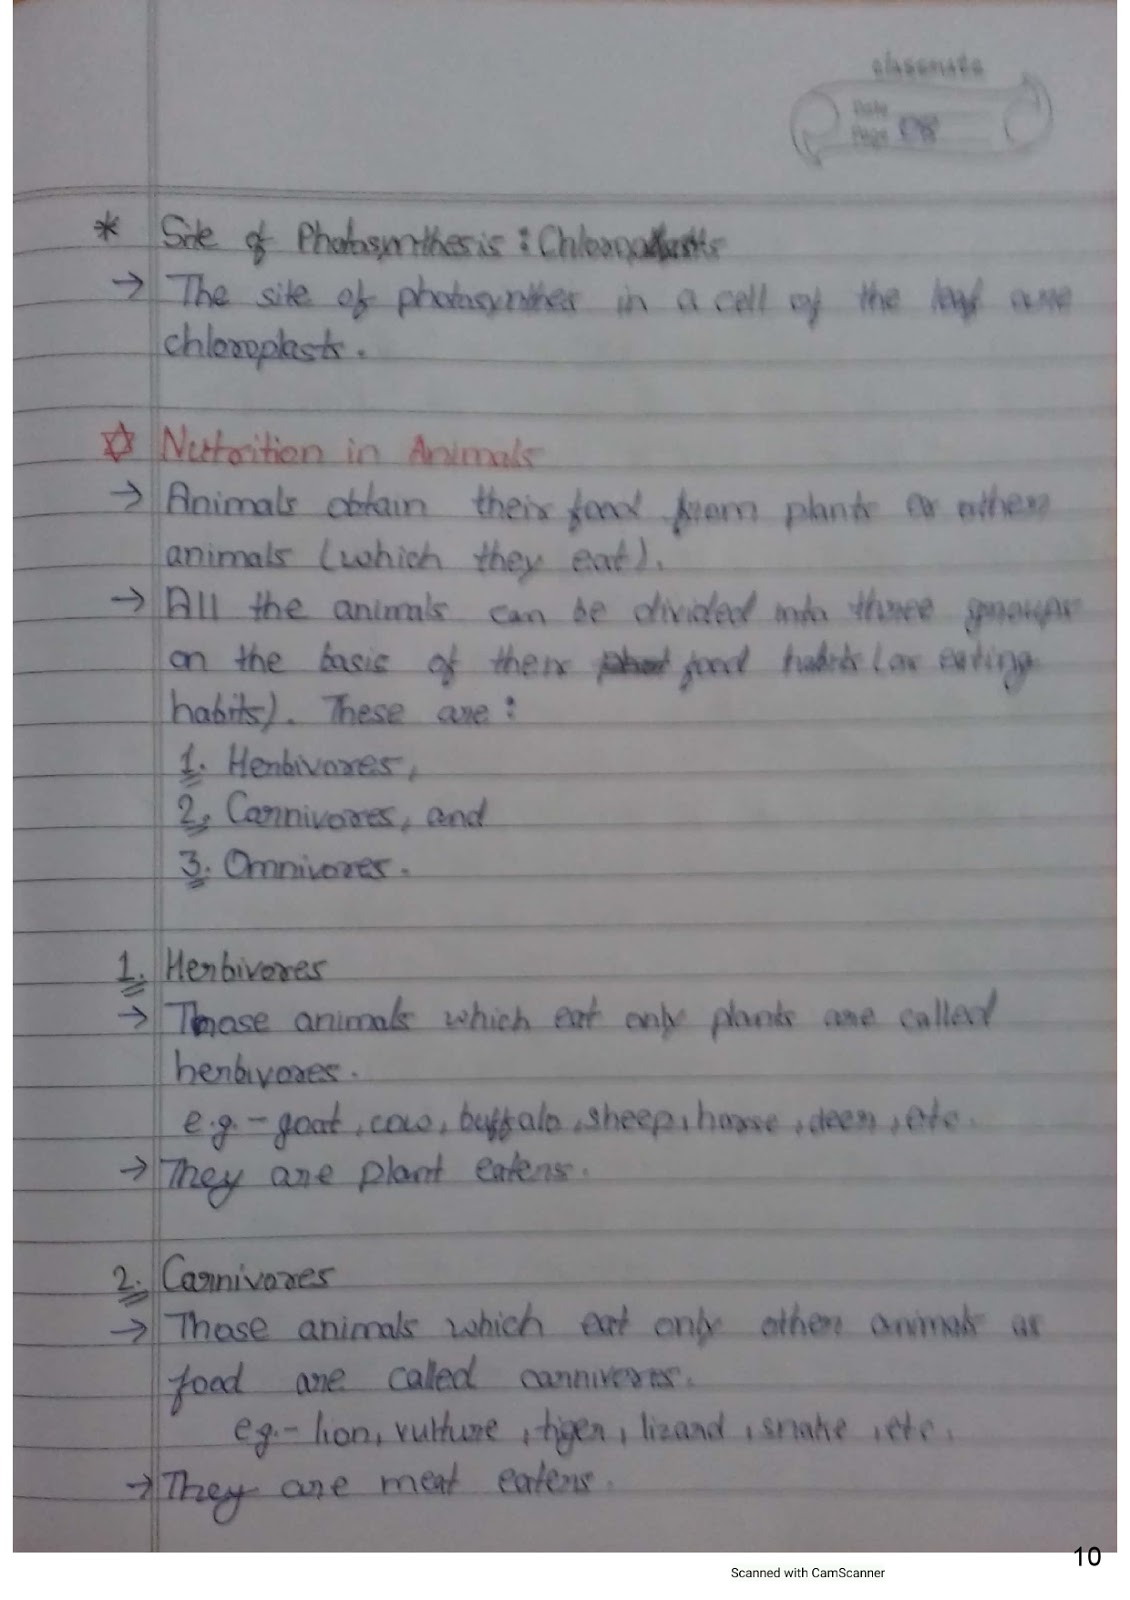 classmate
Date
Page 08
* Site of Photosynthesis : Chloroplasts
→ The site of photosynthes in a cell of the leaf are
chloroplasts.
☆ Nutrition in Animals
→ Animals obtain their food from plants or other
animals (which they eat).
→ All the animals can be divided into three groups
on the basis of their food habits (or eating
habits). These are :
1. Herbivores,
2. Carnivores, and
3. Omnivores.
1. Herbivores
→ Those animals which eat only plants are called
herbivores.
e.g.- goat, cow, buffalo, sheep, horse, deer, etc.
→ They are plant eaters.
2. Carnivores
→ Those animals which eat only other animals as
food are called carnivores.
eg.- lion, vulture, tiger, lizard, snake, etc.
→ They are meat eaters.
10
Scanned with CamScanner